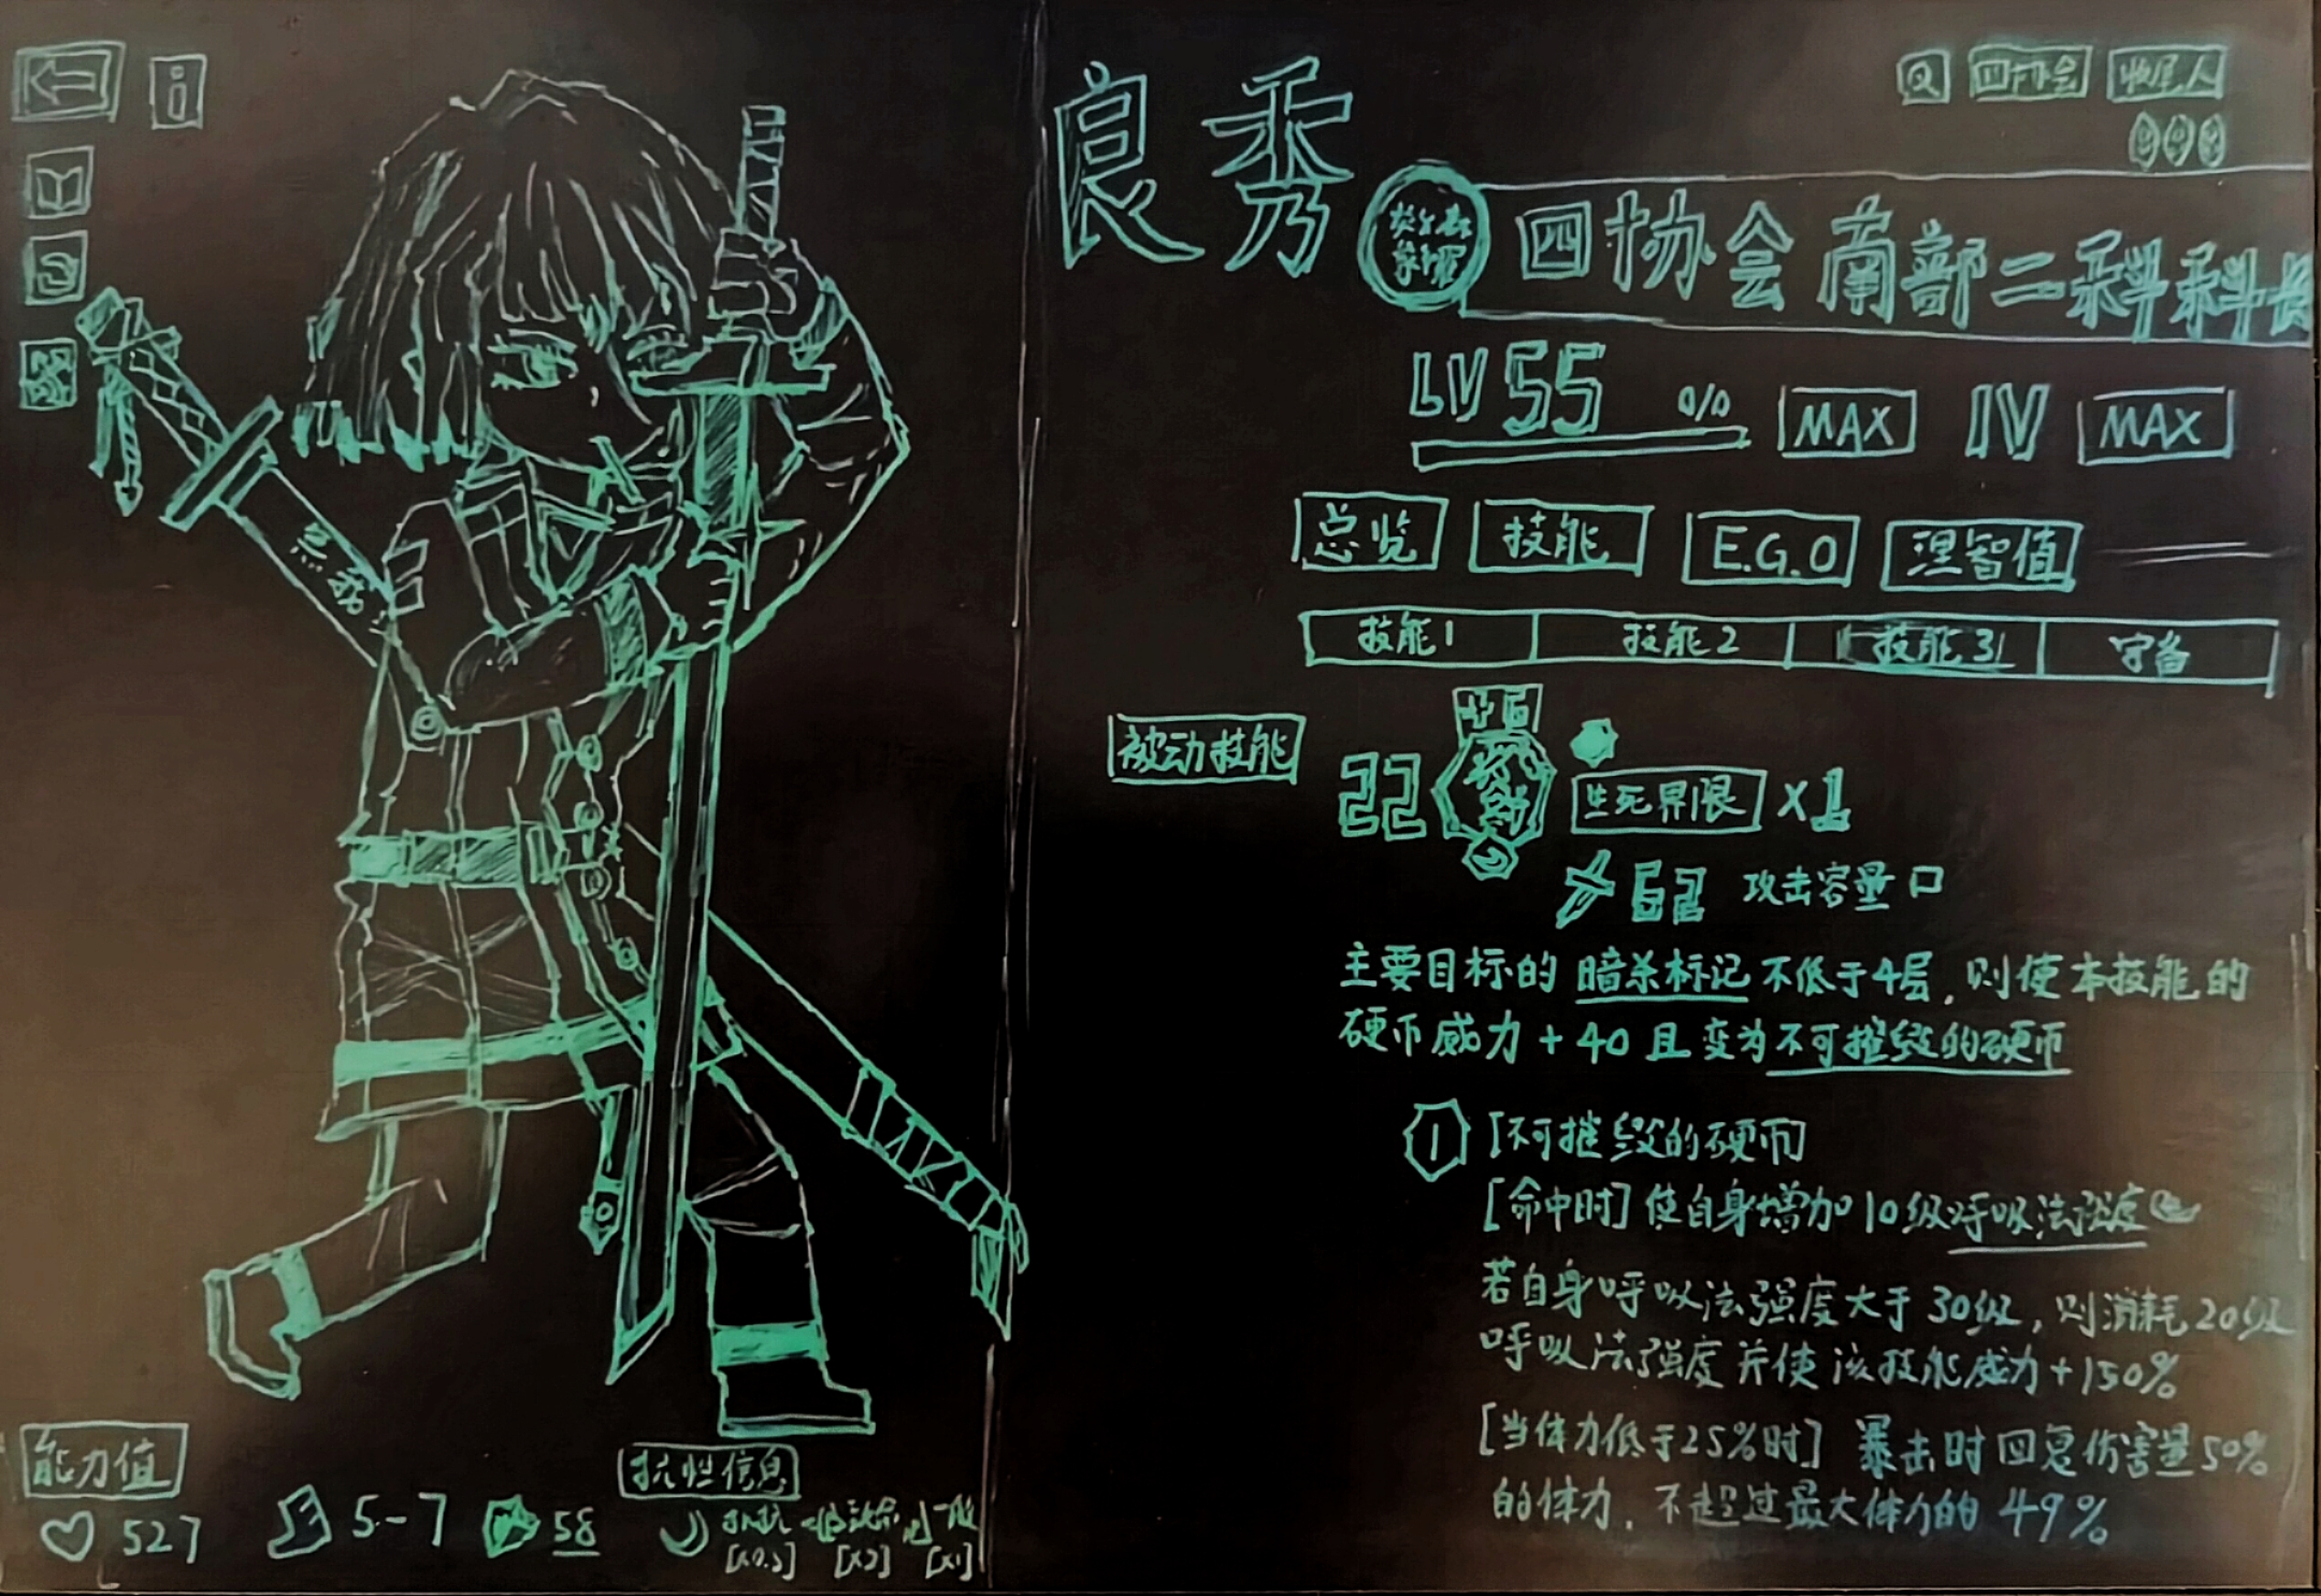 i
良秀
四协会 收尾人
四协会南部二科科长
LV 55 0/0 MAX IV MAX
总览 技能 E.G.O 理智值
技能1 技能2 技能3 守备
被动技能
22 +6
斩击
生死界限 ×1
62 攻击容量 口
主要目标的暗杀标记不低于4层,则使本技能的
硬币威力+40且变为不可摧毁的硬币
1 [不可摧毁的硬币]
[命中时] 使自身增加10级呼吸法强度
若自身呼吸法强度大于30级,则消耗20级
呼吸法强度并使该技能威力+150%
[当体力低于25%时] 暴击时回复伤害量50%
的体力,不超过最大体力的49%
能力值
527 5-7 58
抗性信息
抵抗 一般
[×0.5] [×2] [×1]